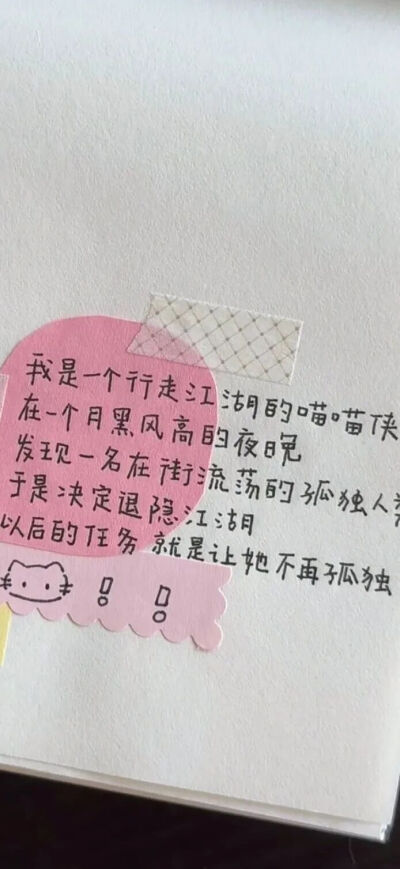 我是一个行走江湖的喵喵侠
在一个月黑风高的夜晚
发现一名在街流荡的孤独人类
于是决定退隐江湖
以后的任务就是让她不再孤独
!!